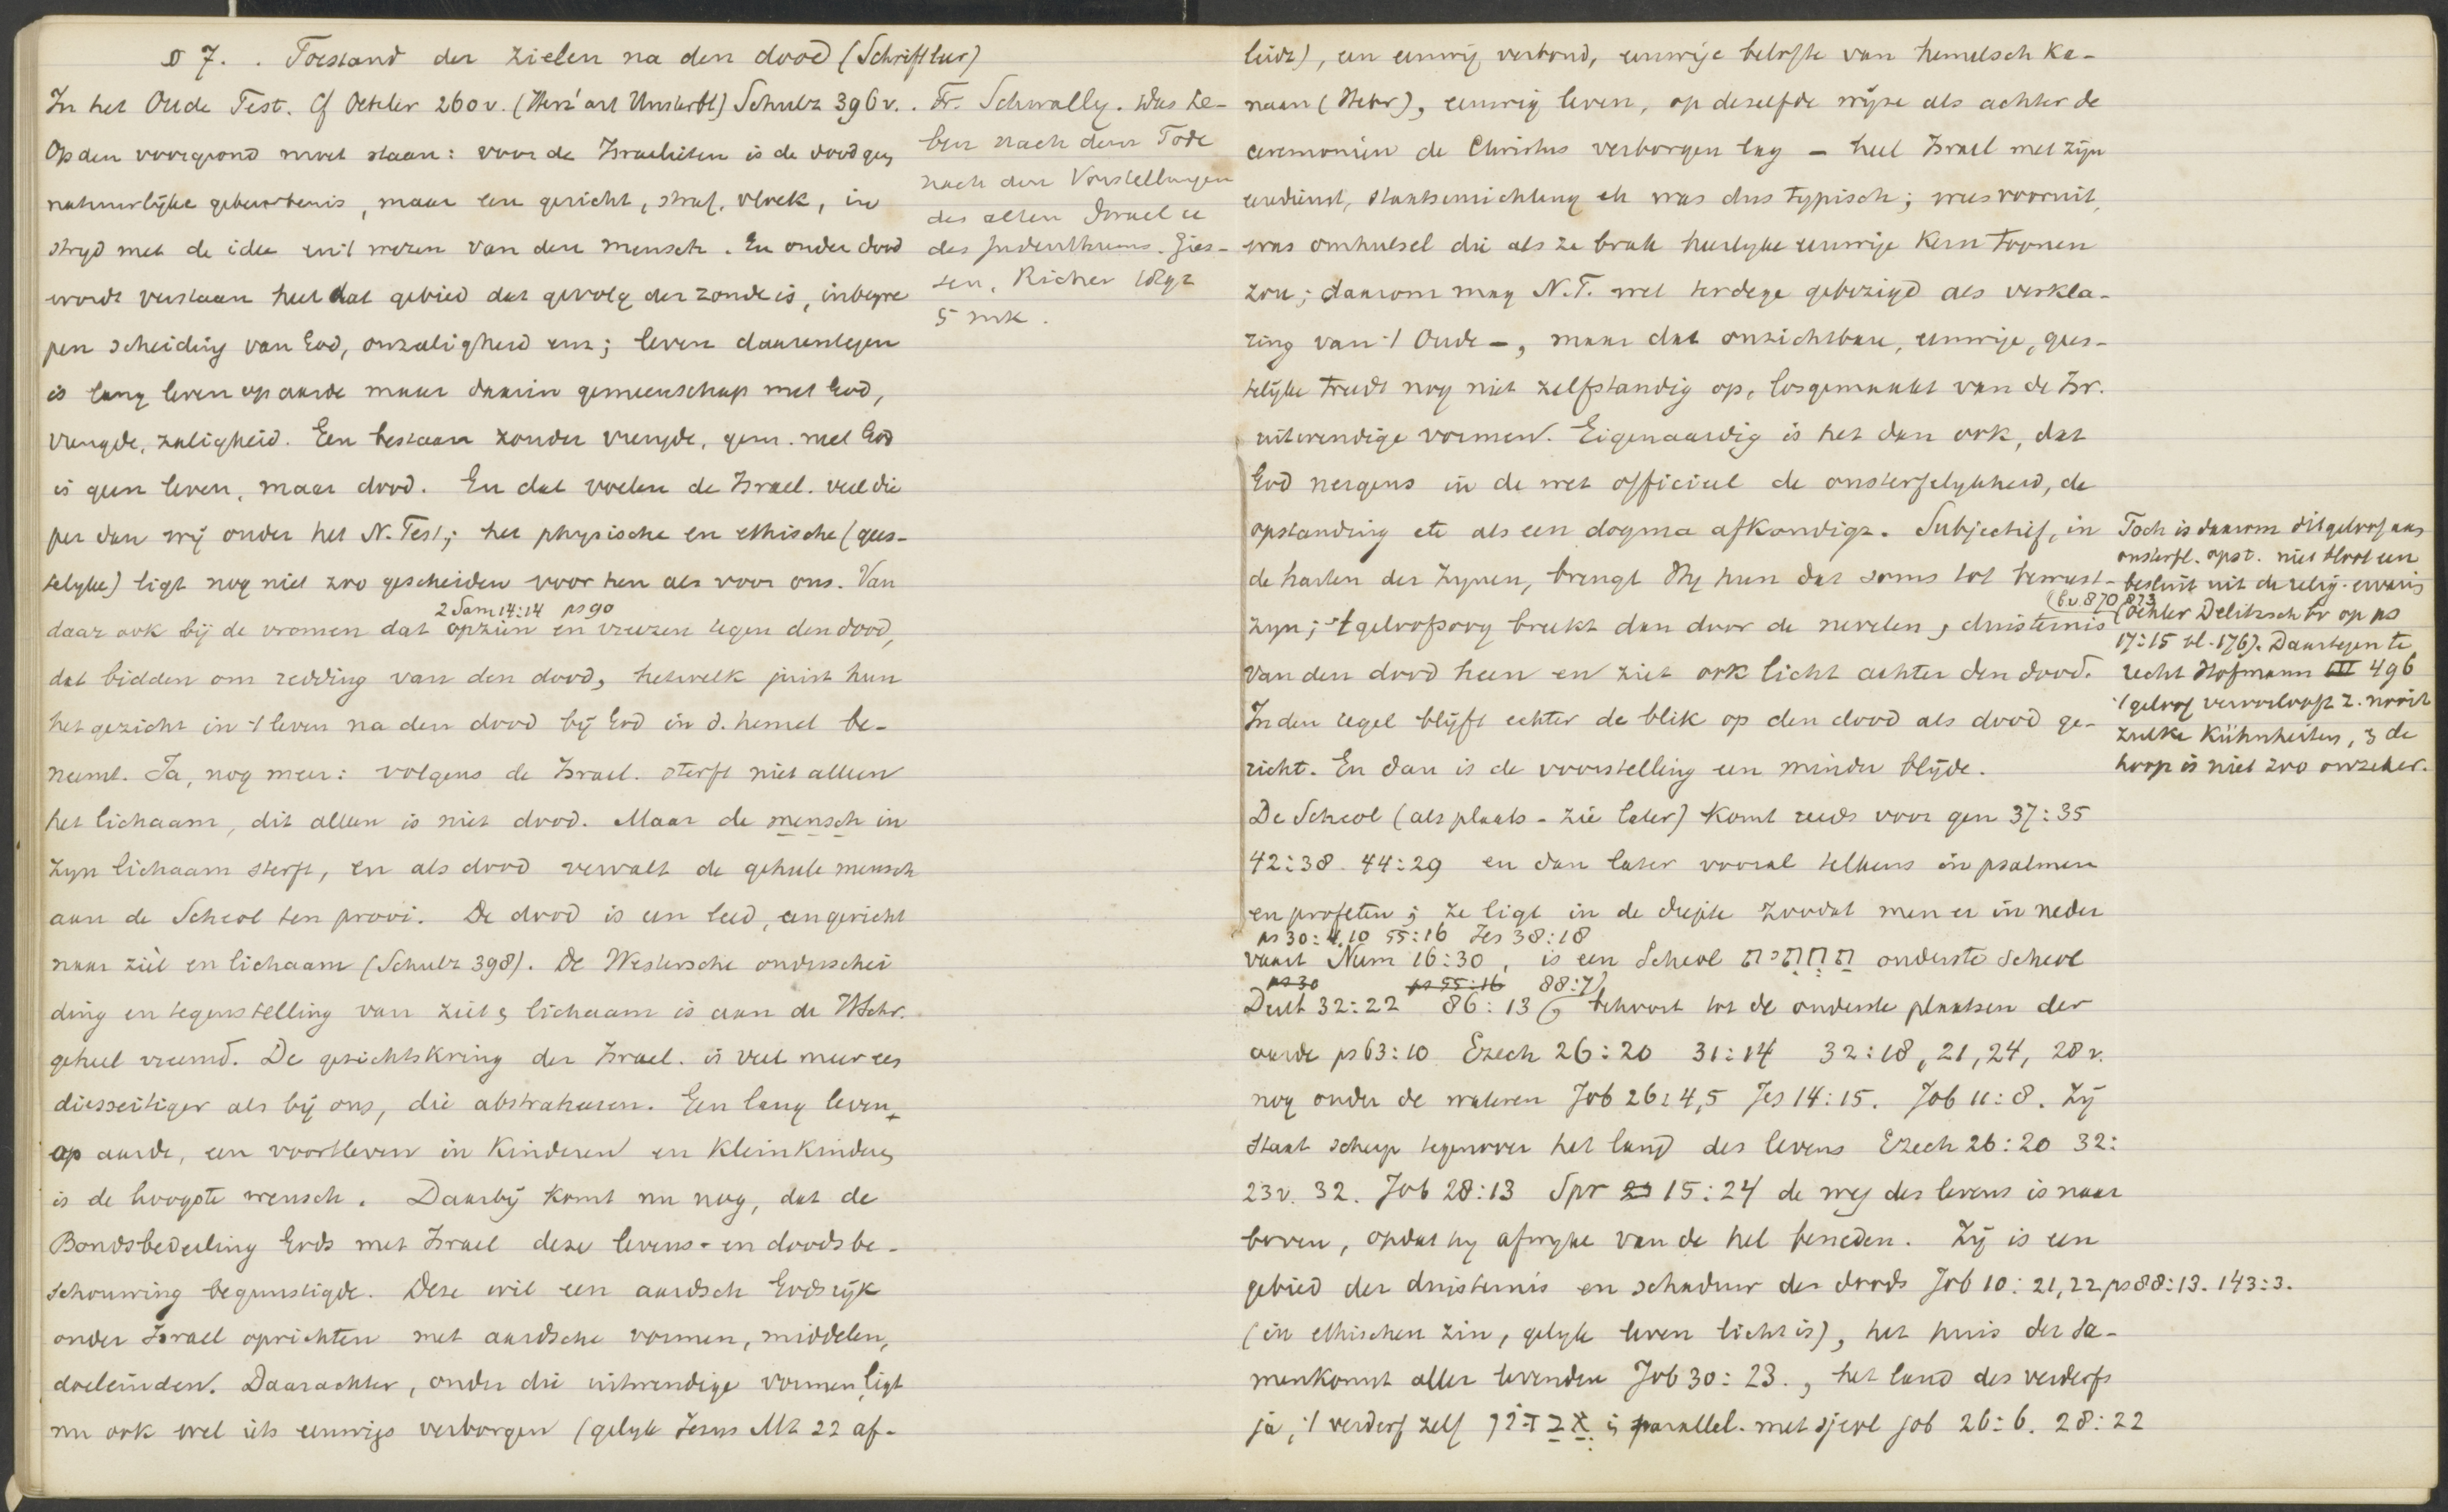 § 7. . Toestand der zielen na den dood (Schriftleer)
In het Oude Test. Cf Oehler 260 v. (Herz' art Unsterbl) Schultz 396 v.
Op den voorgrond moet staan: voor de Israelieten is de dood geen
natuurlijke gebeurtenis, maar een gericht, straf, vloek, in
strijd met de idee en 't wezen van den mensch. En onder dood
wordt verstaan heel dat gebied dat gevolg der zonde is, inbegre
pen scheiding van God, onzaligheid enz; leven daarentegen
is lang leven op aarde maar daarin gemeenschap met God,
vreugde, zaligheid. Een bestaan zonder vreugde, gem. met God
is geen leven, maar dood. En dat voelen de Israel. veel die
per dan wij onder het N. Test; het physische en ethische (gees-
telyke) ligt nog niet zoo gescheiden voor hen als voor ons. Van
2 Sam 14:14 ps 90
daar ook bij de vromen dat opzien en vreezen tegen den dood,
dat bidden om redding van den dood, hetwelk juist hun
het gezicht in 't leven na den dood bij God in d. hemel be-
neemt. Ja, nog meer: volgens de Israel. sterft niet alleen
het lichaam, dit alleen is niet dood. Maar de mensch in
zyn lichaam sterft, en als dood vervalt de geheele mensch
aan de Scheol ten prooi. De dood is een leed, een gericht
naar ziel en lichaam (Schultz 398). De Westersche onderschei
ding en tegenstelling van ziel en lichaam is aan de H Schr.
geheel vreemd. De gezichtskring der Israel. is veel meer
diesseitiger als bij ons, die abstraheeren. Een lang leven
op aarde, een voortleven in kinderen en kleinkinderen
is de hoogste wensch. Daarbij komt nu nog, dat de
Bondsbedeeling Gods met Israel deze levens- en doodsbe-
schouwing begunstigde. Deze wil een aardsch Godsrijk
onder Israel oprichten met aardsche vormen, middelen,
doeleinden. Daarachter, onder die uitwendige vormen ligt
nu ook wel iets eeuwigs verborgen (gelyk Jezus Mt 22 af-
. Fr. Schwally. Das Le-
ben nach dem Tode
nach den Vorstellungen
des alten Israel u
des Judenthums. Gies-
sen, Ricker 1892
5 mk.
leidt), een eeuwig verbond, eeuwige belofte van hemelsch Ka-
naan (Hebr), eeuwig leven, op dezelfde wijze als achter de
ceremoniën de Christus verborgen lag – heel Israel met zijn
eeredienst, staatsinrichting etc was dus typisch; wees vooruit,
was omhulsel die als ze brak heerlyke eeuwige kern toonen
zou; daarom mag N.T. wel terdege gebezigd als verkla-
ring van 't Oude –, maar dat onzichtbare, eeuwige, gees-
telijke treedt nog niet zelfstandig op, losgemaakt van de Isr.
uitwendige vormen. Eigenaardig is het dan ook, dat
God nergens in de wet officieel de onsterfelykheid, de
opstanding etc als een dogma afkondigt. Subjectief, in
de harten der zynen, brengt Hy hun dat soms tot bewust-
zyn; 't geloofsoog breekt dan door de nevelen en duisternis
van den dood heen en ziet ook licht achter den dood.
In den regel blyft echter de blik op den dood als dood ge-
richt. En dan is de voorstelling een minder blijde.
De Scheol (als plaats - zie later) komt reeds voor gen 37:35
42:38. 44:29 en dan later vooral telkens in psalmen
en profeten; ze ligt in de diepte zoodat men er in neder
ps 30:4,10 55:16 Jes 38:18
vaart Num 16:30, is een Scheol תחתית onderste scheol
ps 30 ps 55:16 88:7
Deut 32:22 86:13 behoort tot de onderste plaatsen der
aarde ps 63:10 Ezech 26:20 31:14 32:18, 21, 24, 28 v.
nog onder de wateren Job 26:4,5 Jes 14:15. Job 11:8. Zij
staat scherp tegenover het land des levens Ezech 26:20 32:
23 v. 32. Job 28:13 Spr 15:24 de weg des levens is naar
boven, opdat hy afwyke van de hel beneden. Zij is een
gebied der duisternis en schaduw des doods Job 10:21,22 ps 88:13. 143:3.
(in ethischen zin, gelyk leven licht is), het huis der sa-
menkomst aller levenden Job 30:23., het land des verderfs
ja, 't verderf zelf אבדון is parallel. met sjeol job 26:6. 28:22
Toch is daarom dit geloof aan
onsterfl. opst. niet bloot een
besluit uit de relig. ervaring
(bv 870, 873
(Oehler Delitzsch bv op ps
17:15 bl. 176). Daartegen te
recht Hofmann III 496
't geloof veroorlooft z. nooit
zulke Kühnheiten, en de
hoop is niet zoo onzeker.